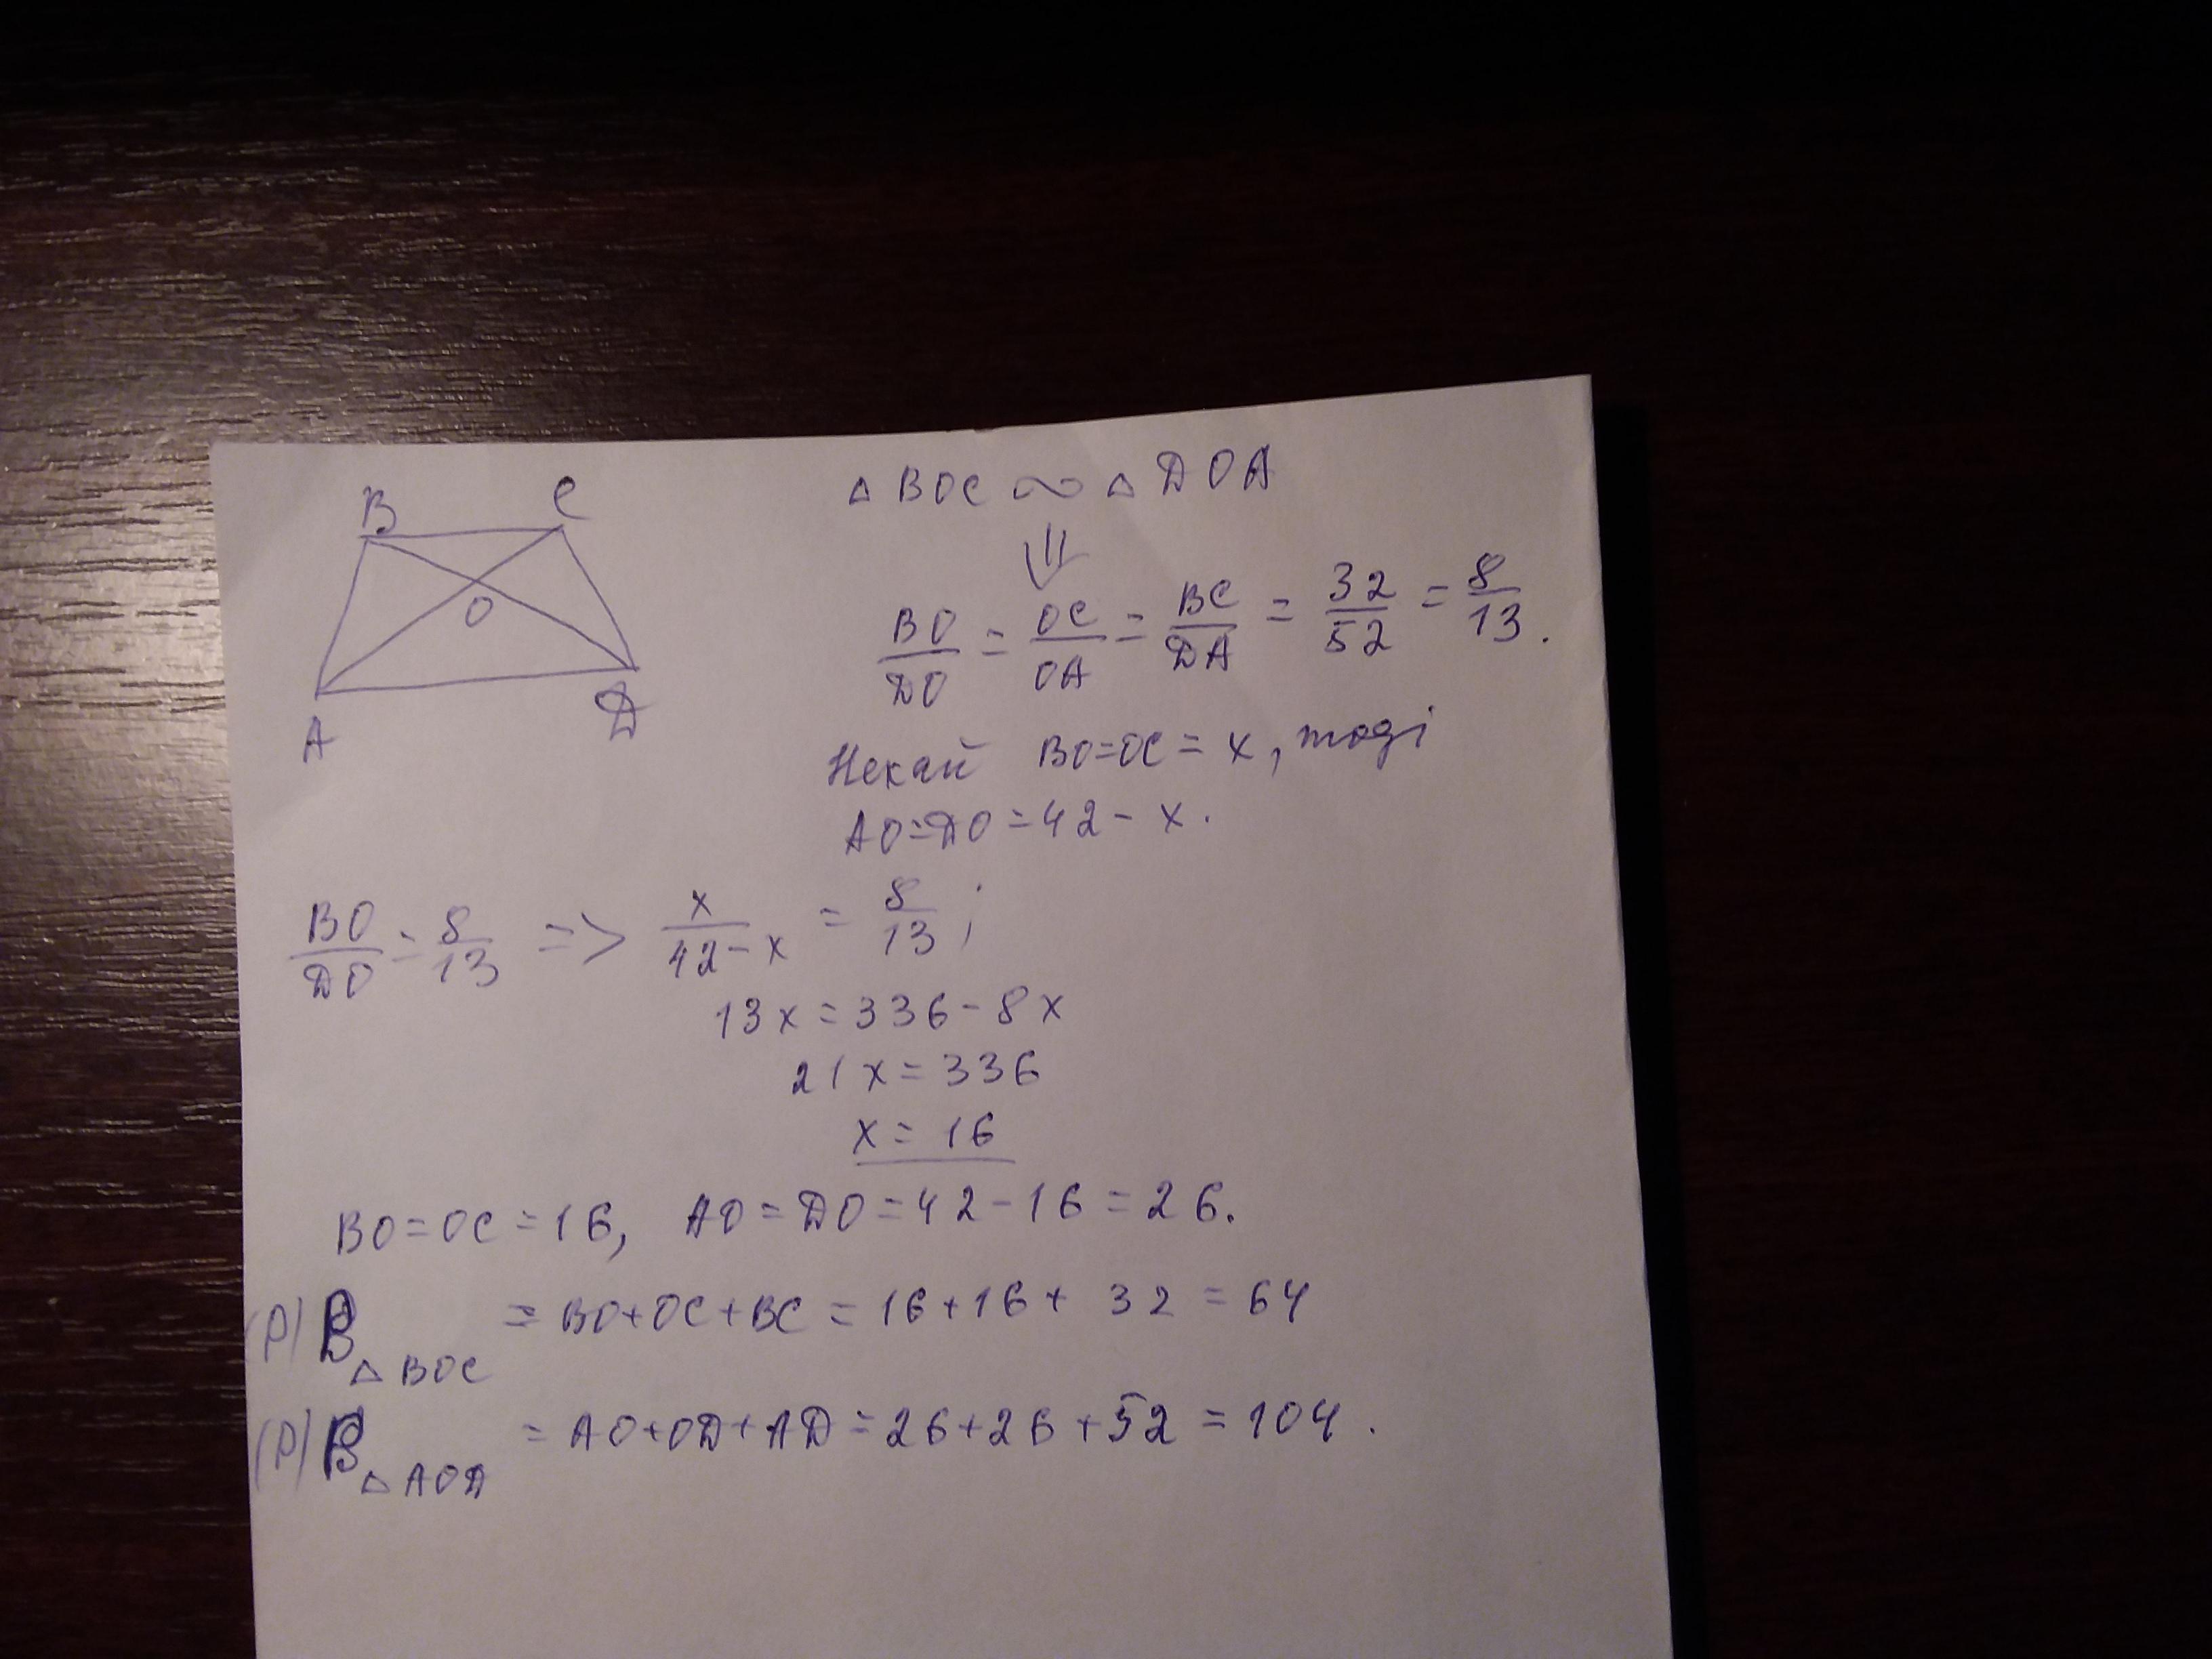 B C
O
A D
△ BOC ∾ △ DOA
⇓
BO/DO = OC/OA = BC/DA = 32/52 = 8/13.
Нехай BO=OC = x, тоді
AO=DO=42-x.
BO/DO = 8/13 => x/(42-x) = 8/13;
13x=336-8x
21x=336
x=16
BO=OC=16, AO=DO=42-16=26.
(P) P△BOC = BO+OC+BC=16+16+32=64
(P) P△AOD = AO+OD+AD=26+26+52=104.